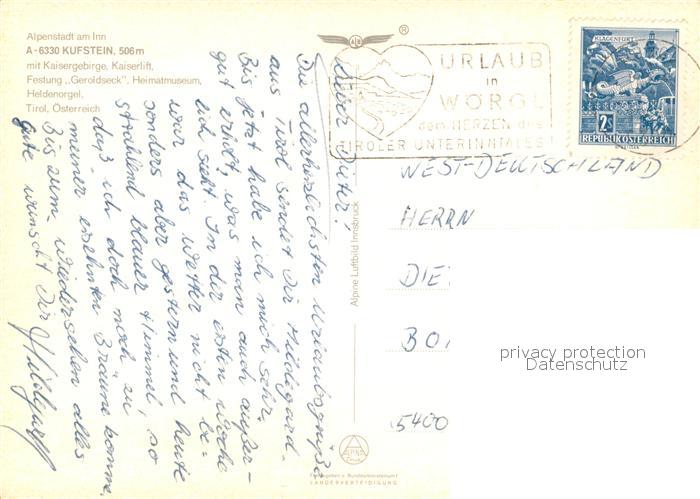 Alpenstadt am Inn
A-6330 KUFSTEIN, 506 m
mit Kaisergebirge, Kaiserlift,
Festung „Geroldseck", Heimatmuseum,
Heldenorgel.
Tirol, Österreich
Lieber Dieter!
Die allerherzlichsten Urlaubsgrüße
aus Tirol sendet Dir Hildegard.
Bis jetzt habe ich mich sehr
gut erholt, was man auch äußer-
lich sieht. In der ersten Woche
war das Wetter nicht be-
sonders aber gestern und heute
strahlend blauer Himmel, so
daß ich doch noch zu
meiner ersehnten Bräune komme.
Bis zum wiedersehen alles
gute wünscht Dir
Hildegard
Alpine Luftbild Innsbruck
URLAUB
in
WÖRGL
dem HERZEN des
TIROLER UNTERINNTALES
KLAGENFURT
2S
REPUBLIK ÖSTERREICH
WEST-DEUTSCHLAND
HERRN
DIE
BO
5400
privacy protection
Datenschutz
ALPINE
Freigegeben v. Bundesministerium f.
LANDESVERTEIDIGUNG